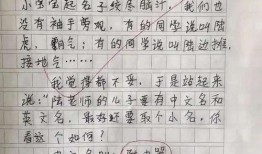 小宝宝起名子绞尽脑汁，我们也
没有袖手旁观，有的同学说叫陆
虎，霸气；有的同学说叫陆边摊，
接地气……
我觉得都不妥，于是站起来
说：“陆老师的儿子要有中文名和
英文名，最好还要取个小名，你
看这个如何？